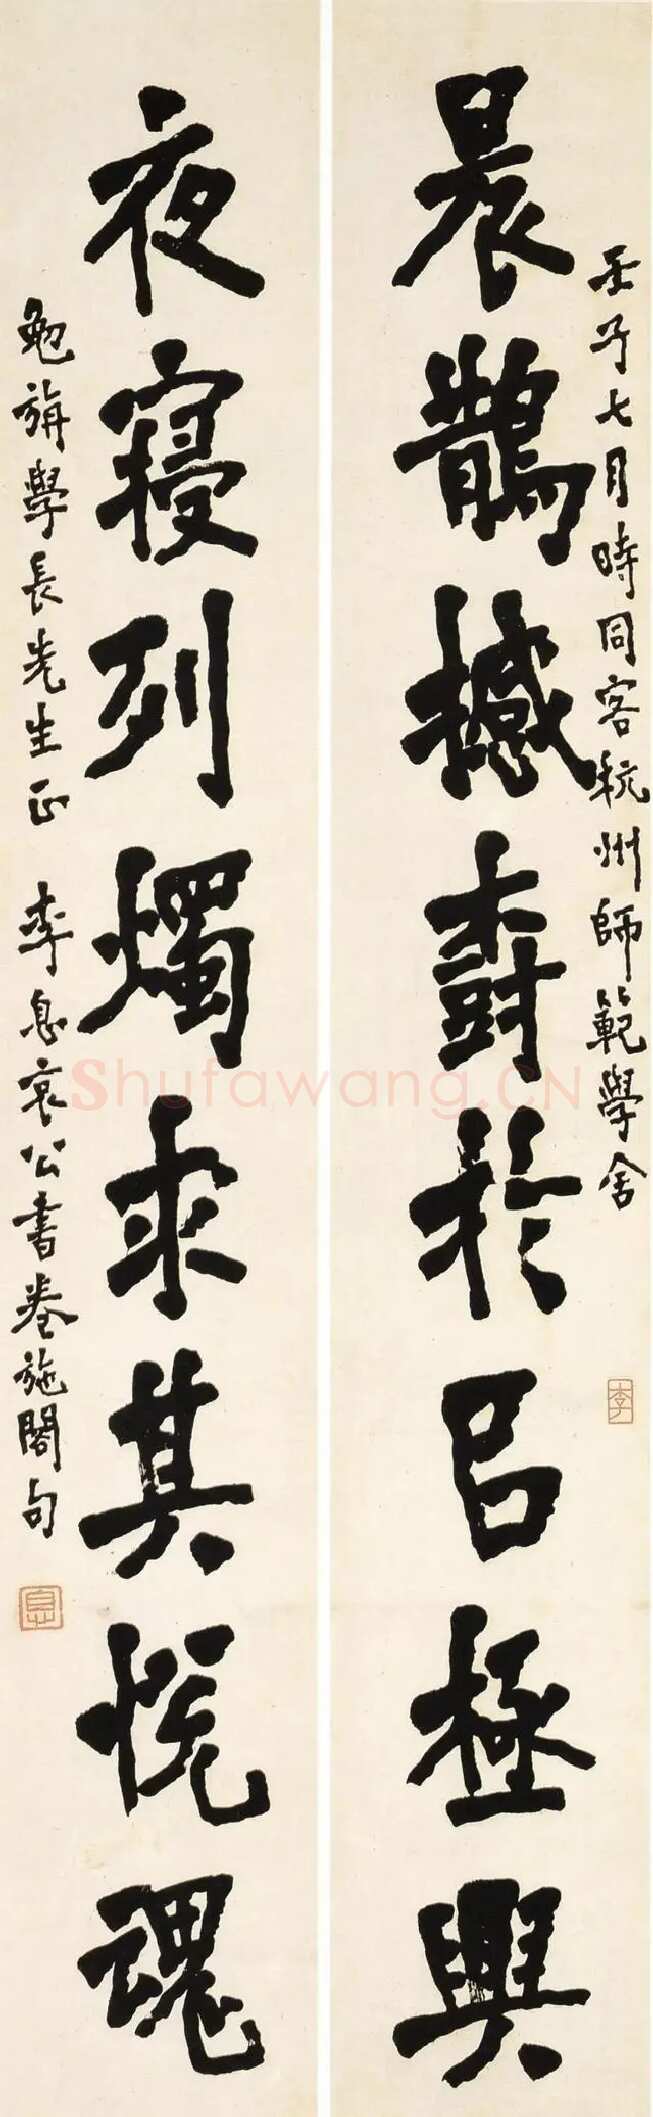 壬子七月時同客杭州師範學舍
李
晨鵲撼樹於㠯極興
夜寢列燭求其悦魂
勉旃學長先生正 李息哀公書卷施閣句
息
Shufawang.CN